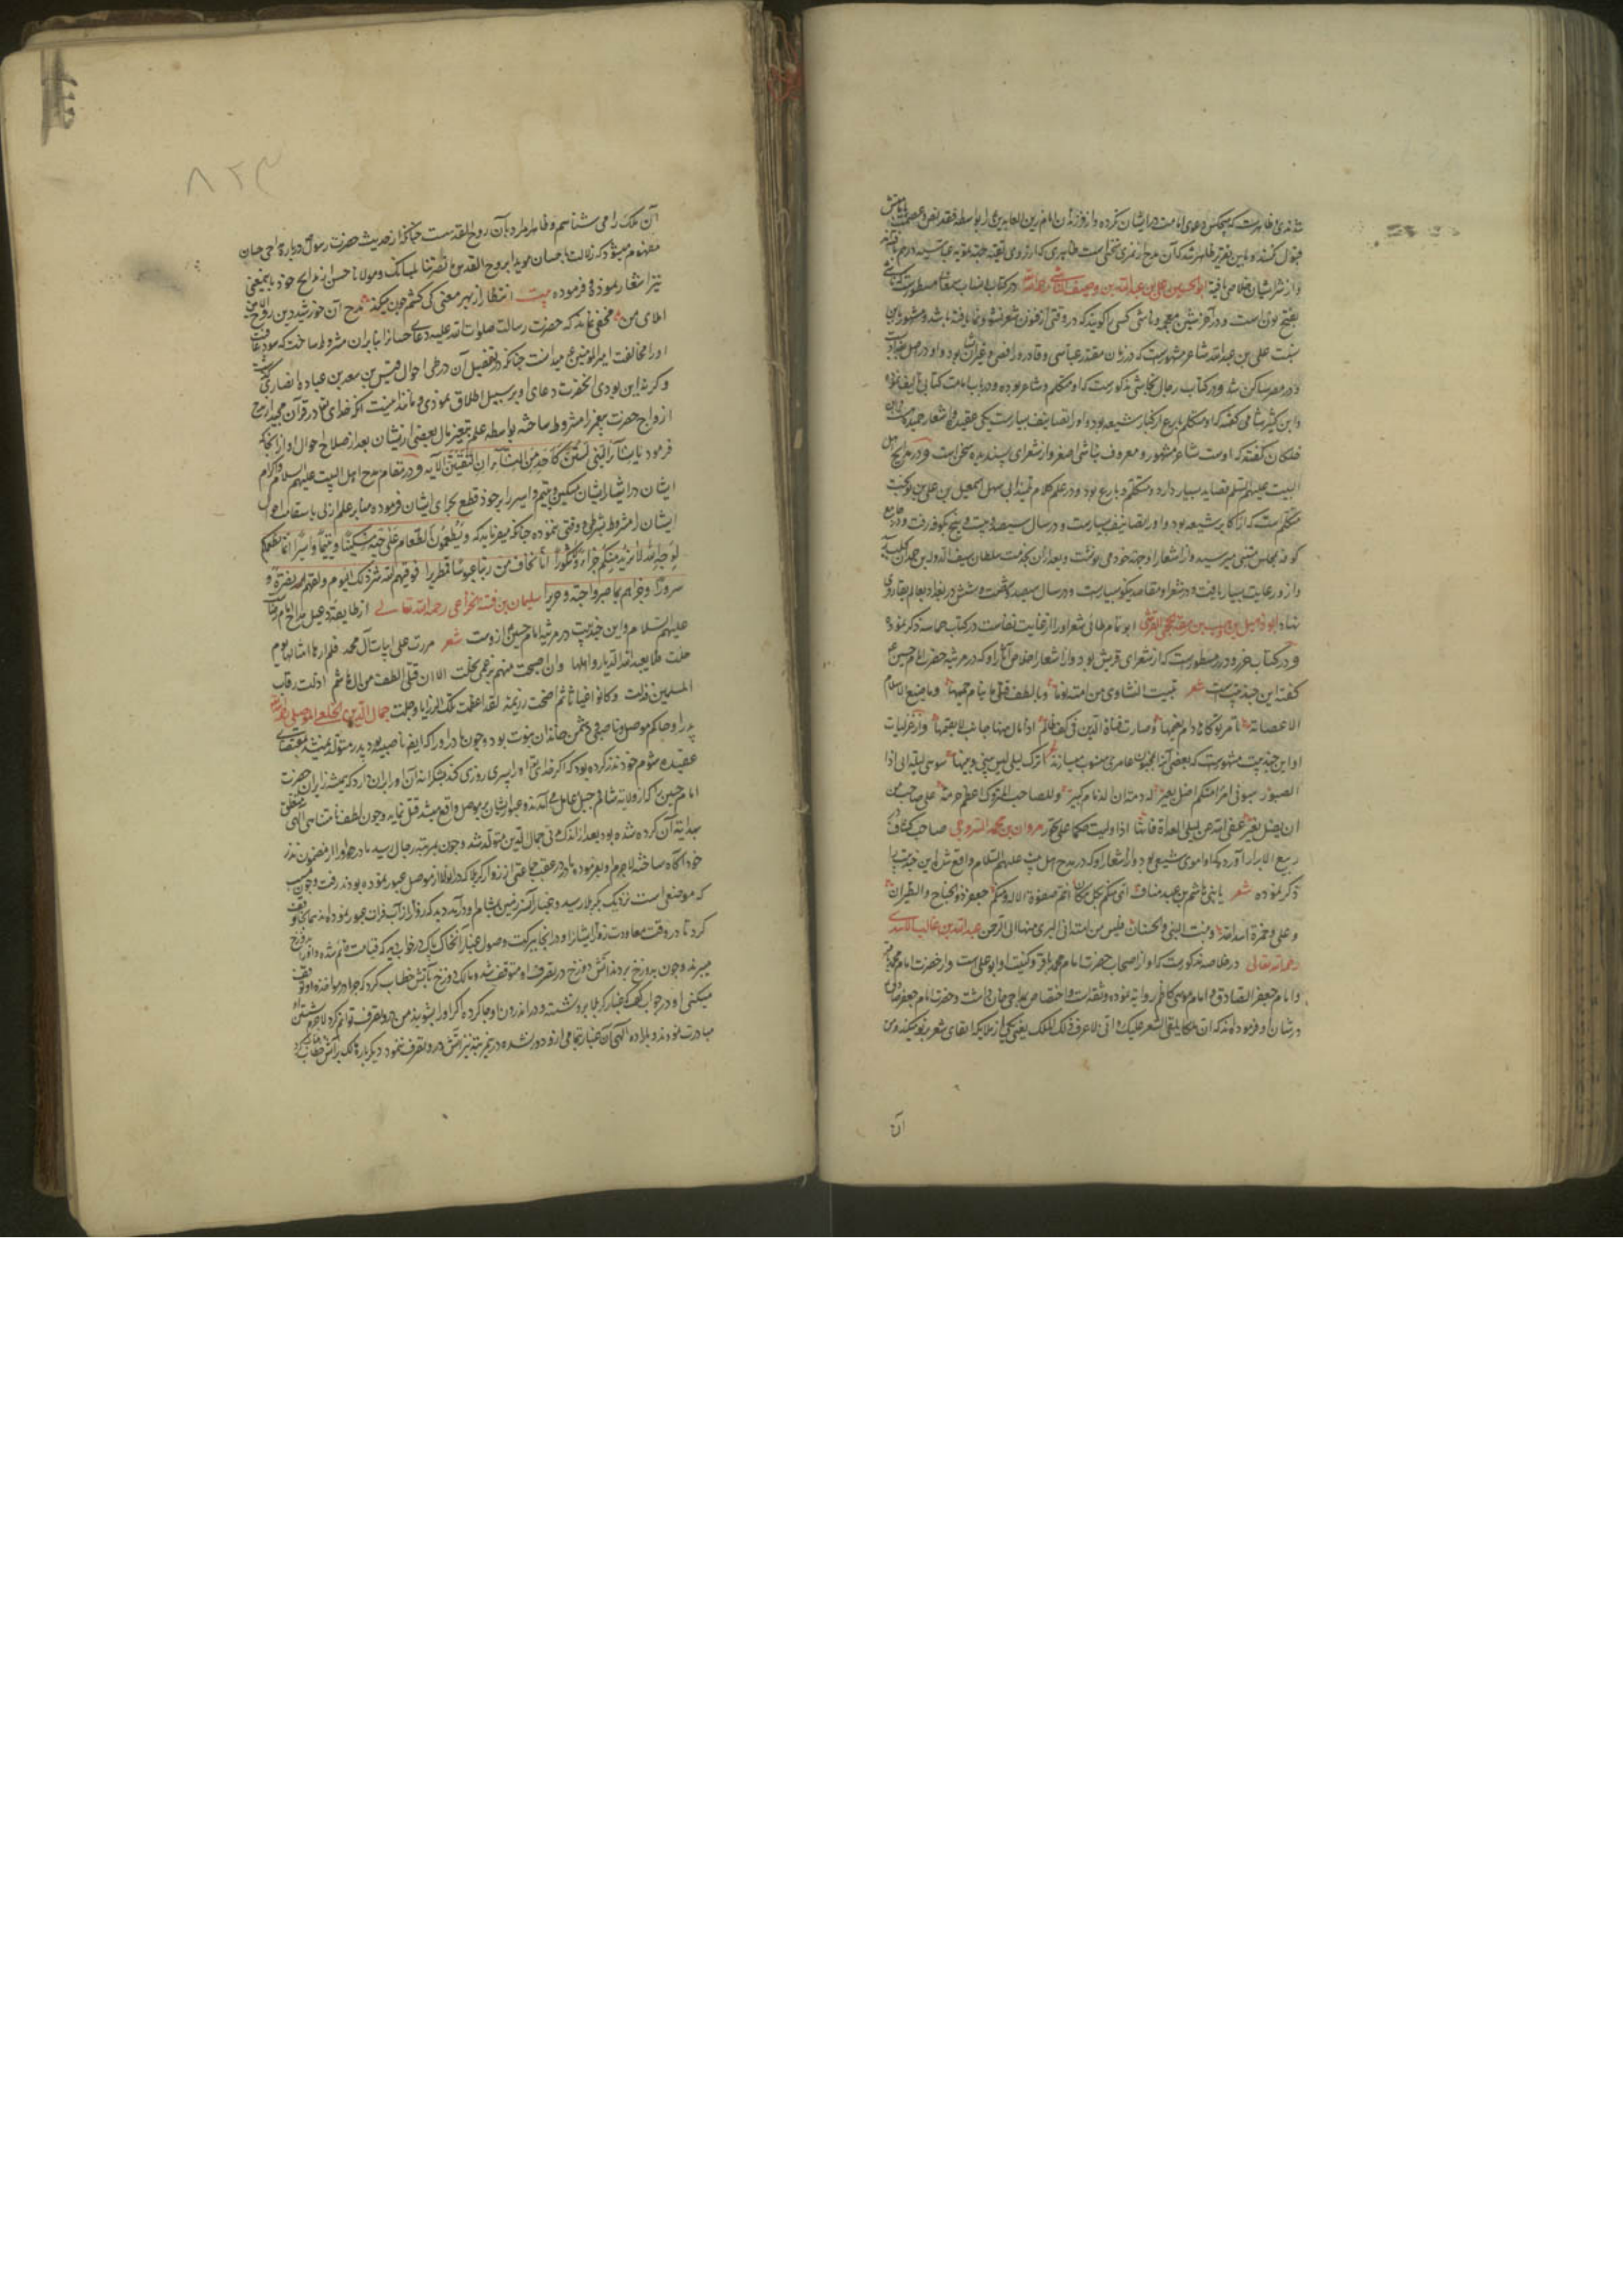 شده و ظاهرست که هیچکس دعوی امامت در ایشان نکرده و از فرزندان امام زین العابدین
قبول کنند و باین تقریر ظاهر شد که آن مدح از
و از شرّ ایشان خلاصی یافته ابو الحسین علی بن عبدالله بن وصیف الناشی رحمه الله در کتاب انساب سمعانی مسطورست که ناشی
بفتح نون است و در آخر شین معجمه و ناشی کسی را گویند که در فنی از فنون شعر نشو و نما یافته باشد و مشهور باین
نسبت علی بن عبدالله شاعر مشهورست که در زمان مقتدر عباسی و قادر و راضی و غیر ایشان بود و او در اصل بغدادیست
و در مصر ساکن شد و در کتاب رجال نجاشی مذکورست که او متکلم و شاعر بوده و در باب امامت کتابی تالیف نموده
و ابن کثیر شامی گفته که او متکلم بارع از کبار شیعه بود و او را تصانیف بسیارست
خلکان گفته که اوست شاعر مشهور و معروف بناشی اصغر و از شعرای پسندیده سخن است و در مدایح اهل
البیت علیهم السلم قصاید بسیار دارد و متکلم و بارع بود و در علم کلام تلمیذ ابی سهل اسمعیل بن علی بن نوبخت
متکلم ست که از اکابر شیعه بود و او را تصانیف بسیارست و در سال سیصد و بیست و پنج بکوفه رفت و در جامع
کوفه بمجلس متنبی میرسید و از اشعار او جهت خود می نوشت و بعد از آن بخدمت سلطان سیف الدوله بن حمدان
و از و رعایت بسیار یافت و در شعر او مقاصد نیکو بسیارست و در سال سیصد و شصت و شش در بغداد بعالم بقا روی
نهاد ابو دهبل بن وهب بن ربیعه الجمحی القرشی ابو تمام طائی شعر او را از غایت نفاست در کتاب حماسه ذکر نموده
و در کتاب غرر و درر مسطورست که از شعرای قریش بود و از اشعار اخلاص آثار او که در مرثیه حضرت امام حسین ع
گفته این چند بیت ست شعر تبیت النشاوی من امیه نوما و بالطف قتلی ما ینام حمیمها و ما ضیع الاسلام
الا عصابة تامر نوکاها و دام نعیمها و صارت قناة الدین فی کف ظالم اذا مال منها جانب لا یقیمها و از غزلیات
او این چند بیت مشهورست که بعضی آنرا بمجنون عامری منسوب میسازند أ اترک لیلی لیس بینی و بینها سوی لیلة انی اذا
الصبور هبونی امرأ منکم اضل بعیره له ذمة ان الذمام کبیر و للصاحب المتروک اعظم حرمة علی صاحب من
ان یضل بعیر عفی الله عن لیلی الغداة فانها اذا ولیت حکما علی تجور مروان بن محمد السروجی صاحب کشاف در
ربیع الابرار آورده که او اموی شیعی بود و از اشعار او که در مدح اهل بیت علیهم السلام واقع شده این چند بیت را
ذکر نموده شعر یا بنی هاشم بن عبد مناف انی منکم بکل مکان انتم صفوة الاله و منکم جعفر ذو الجناح و الطیران
و علی و حمزة اسد الله و بنت النبی و الحسنان فلئن کنت من امیة انی لبری منها الی الرحمن عبدالله بن غالب الاسدی
رحمه الله تعالی در خلاصه مذکورست که او از اصحاب حضرت امام محمد باقر و کنیت او ابو علی ست و از حضرت امام محمد باقر
و امام جعفر الصادق و امام موسی کاظم روایة نموده و ثقه است و
در شان او فرموده اند که ان ملکا یلقی الشعر علیک و انی لاعرف ذلک الملک یعنی یکی از ملایکه القای شعر بر تو میکند و من
آن
۸۲۳
آن ملک را می شناسم و ظاهرا مراد بآن روح القدس ست چنانکه از حدیث حضرت رسول درباره مداحی حسان
مفهوم میشود که زالت یا حسان مویدا بروح القدس ما نصرتنا بلسانک و مولانا حسن در مدایح خود باینمعنی
نیز اشعار نموده و فرموده بیت انتظار از بهر معنی کی کشم چون میکند مدح آن خورشید دین روح الامین
املای من مخفی نماند که حضرت رسالت صلوات الله علیه دعای حسان را بنا بر آن مشروط ساخت که سوء عاقبت
او را مخالفت امیر المومنین ع میدانست چنانکه تفصیل آن در طی احوال قیس بن سعد بن عباده انصاری گذشت
و گرنه این بودی انحضرت دعای او بر سبیل اطلاق نمودی و مانند اینست آنکه خدای تعالی در قرآن مجید مدح
ازواج حضرت پیغمبر را مشروط ساخته بواسطه علم بتغیر حال بعضی از ایشان بعد از صلاح احوال او از آنجا که
فرموده یا نساء النبی لستن کاحد من النساء ان اتقیتن الآیه و در مقام مدح اهل البیت علیهم السلم و اکرام
ایشان در ایثار ایشان مسکین و یتیم و اسیر را بر خود قطع بجزای ایشان فرموده بنا بر علم ازلی باستقامت احوال
ایشان را مشروط بشرطی و وقتی ننموده چنانکه میفرماید که و یطعمون الطعام علی حبه مسکینا و یتیما و اسیرا انما نطعمکم
لوجه الله لا نرید منکم جزاء و لا شکورا انا نخاف من ربنا یوما عبوسا قمطریرا فوقیهم الله شر ذلک الیوم و لقیهم نضرة و
سرورا و جزاهم بما صبروا جنة و حریرا سلیمان بن قتة الخزاعی رحمه الله تعالی از طایفه دعبل مداح
علیهم السلام و این چند بیت در مرثیه امام حسین ع از وست شعر مررت علی ابیات آل محمد فلم ارها امثالها یوم
حلت فلا یبعد الله الدیار و اهلها و ان اصبحت منهم بزعمی تخلت الا ان قتلی الطف من آل هاشم اذلت رقاب
المسلمین فذلت و کانوا غیاثا ثم اضحت رزیة لقد اعظمت تلک الرزایا و جلت جمال الدین الخلعی الموصلی
پدر او حاکم موصل و ناصبی و دشمن خاندان نبوت بود و چون مادر او را که ایضا ناصبیه بود پسر متولد نمیشد بمقتضای
عقیده شوم خود نذر کرده بود که اگر خدای تعالی او را پسری روزی کند بشکرانه آن او را بر آن دارد که همیشه زایران حضرت
امام حسین را که از ولایت شام و جبل عامل می آمدند و عبور ایشان بر موصل واقع میشد قتل نماید و چون لطف نامتناهی الهی متعلق
بهدایت آن کرده شده بود بعد از اندک مدتی جمال الدین متولد شد و چون بمرتبه رجال رسید مادر او را از مضمون نذر
خود آگاه ساخته لاجرم او بفرموده مادر در عقب جماعتی از زوار کربلا که در آنولا از موصل عبور نموده بودند رفت و چون بمسیب
که موضعی است نزدیک بکربلا رسید و غبار آن سرزمین بمشام او درآمد دید که زوار از آب فرات عبور نموده اند همانجا توقف
کرد تا در وقت معاودت زوار ایشانرا و در آنجا ببرکت وصول غبار آن خاک پاک در خواب دید که قیامت قائم شده و او را بدوزخ
میبرند و چون بدوزخ بردند آتش دوزخ در تصرف او متوقف شد و مالک دوزخ بآتش خطاب کرد که چرا در مواخذه او توقف
میکنی او در جواب گفت که غبار کربلا بر و نشسته و در اندرون او جا کرده اگر او را بشویند من در و تصرف توانم کرد لاجرم بشستن او
مبادرت نمودند و باراده الهی آن غبار بتمامی از و دور نشده در مرتبه نیز آتش در و تصرف ننمود دیگر باره مالک بر آتش خطاب کرد